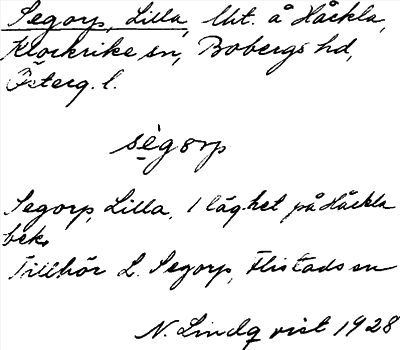 Segorp, Lilla, lht. å Håckla,
Klockrike sn, Bobergs hd,
Österg. l.
sègorp
Segorp, Lilla, 1 läg.het på Håckla
bek.
Tillhör L. Segorp, Flistads sn
N. Lindqvist 1928